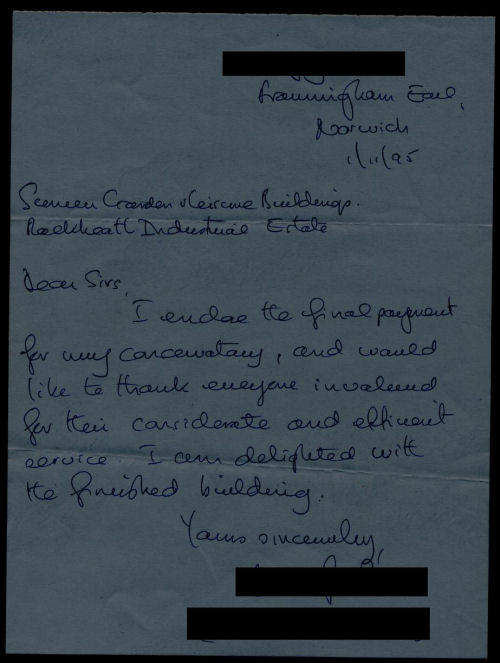 Framingham Earl,
Norwich
1/11/95
Garden & Leisure Buildings.
Rackheath Industrial Estate
Dear Sirs,
I enclose the final payment
for my conservatory, and would
like to thank everyone involved
for their considerate and efficient
service. I am delighted with
the finished building.
Yours sincerely,